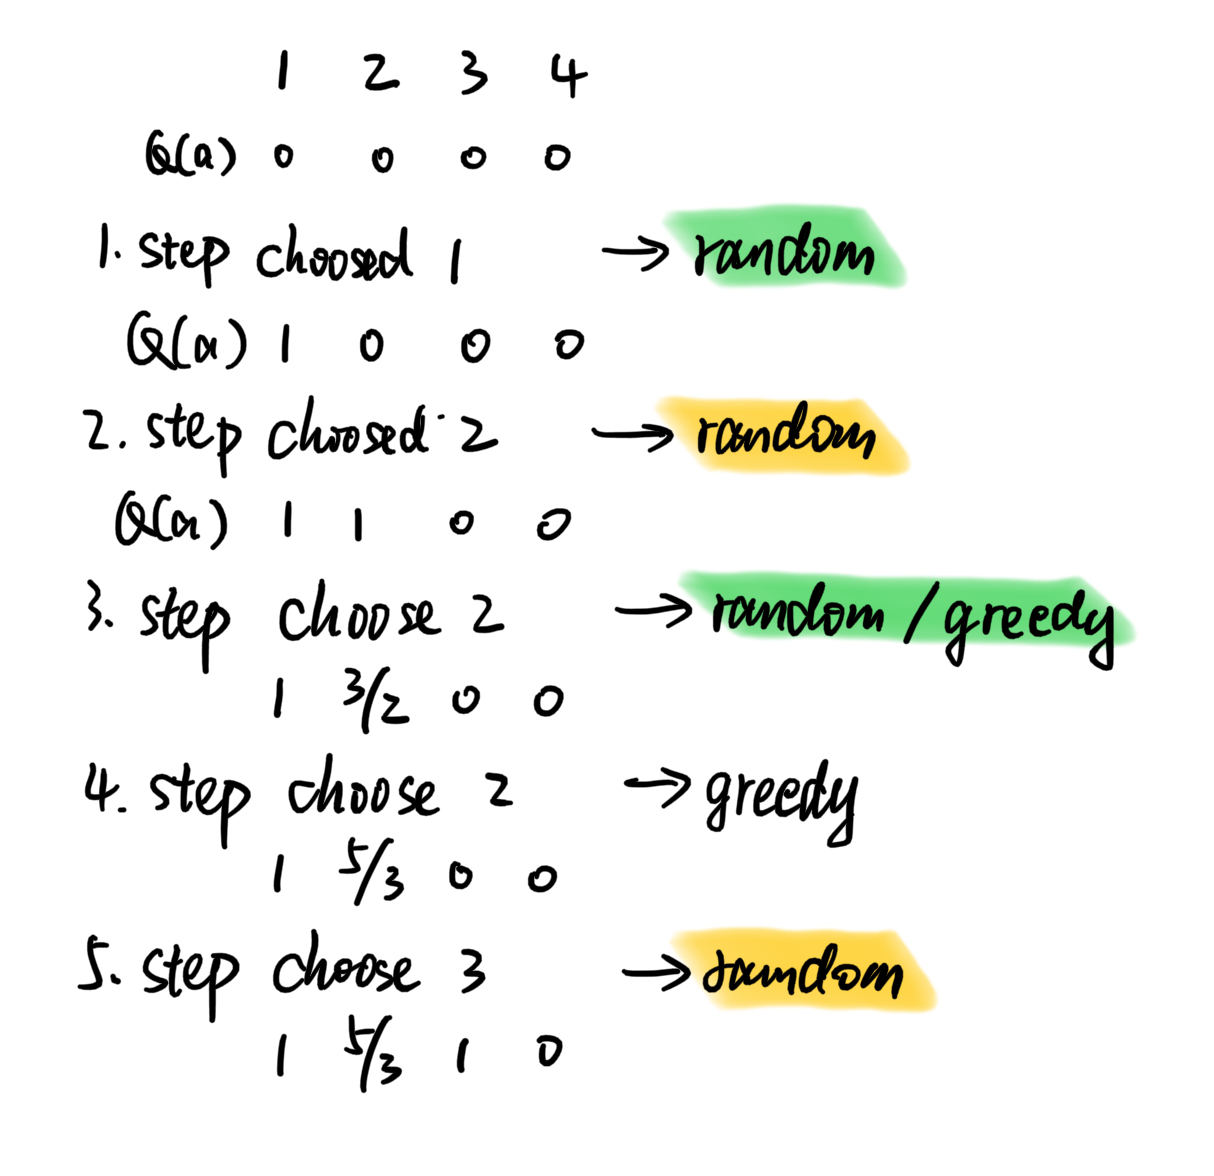 1 2 3 4
Q(a) 0 0 0 0
1. step choosed 1 → random
Q(a) 1 0 0 0
2. step choosed 2 → random
Q(a) 1 1 0 0
3. step choose 2 → random / greedy
1 3/2 0 0
4. step choose 2 → greedy
1 5/3 0 0
5. step choose 3 → random
1 5/3 1 0